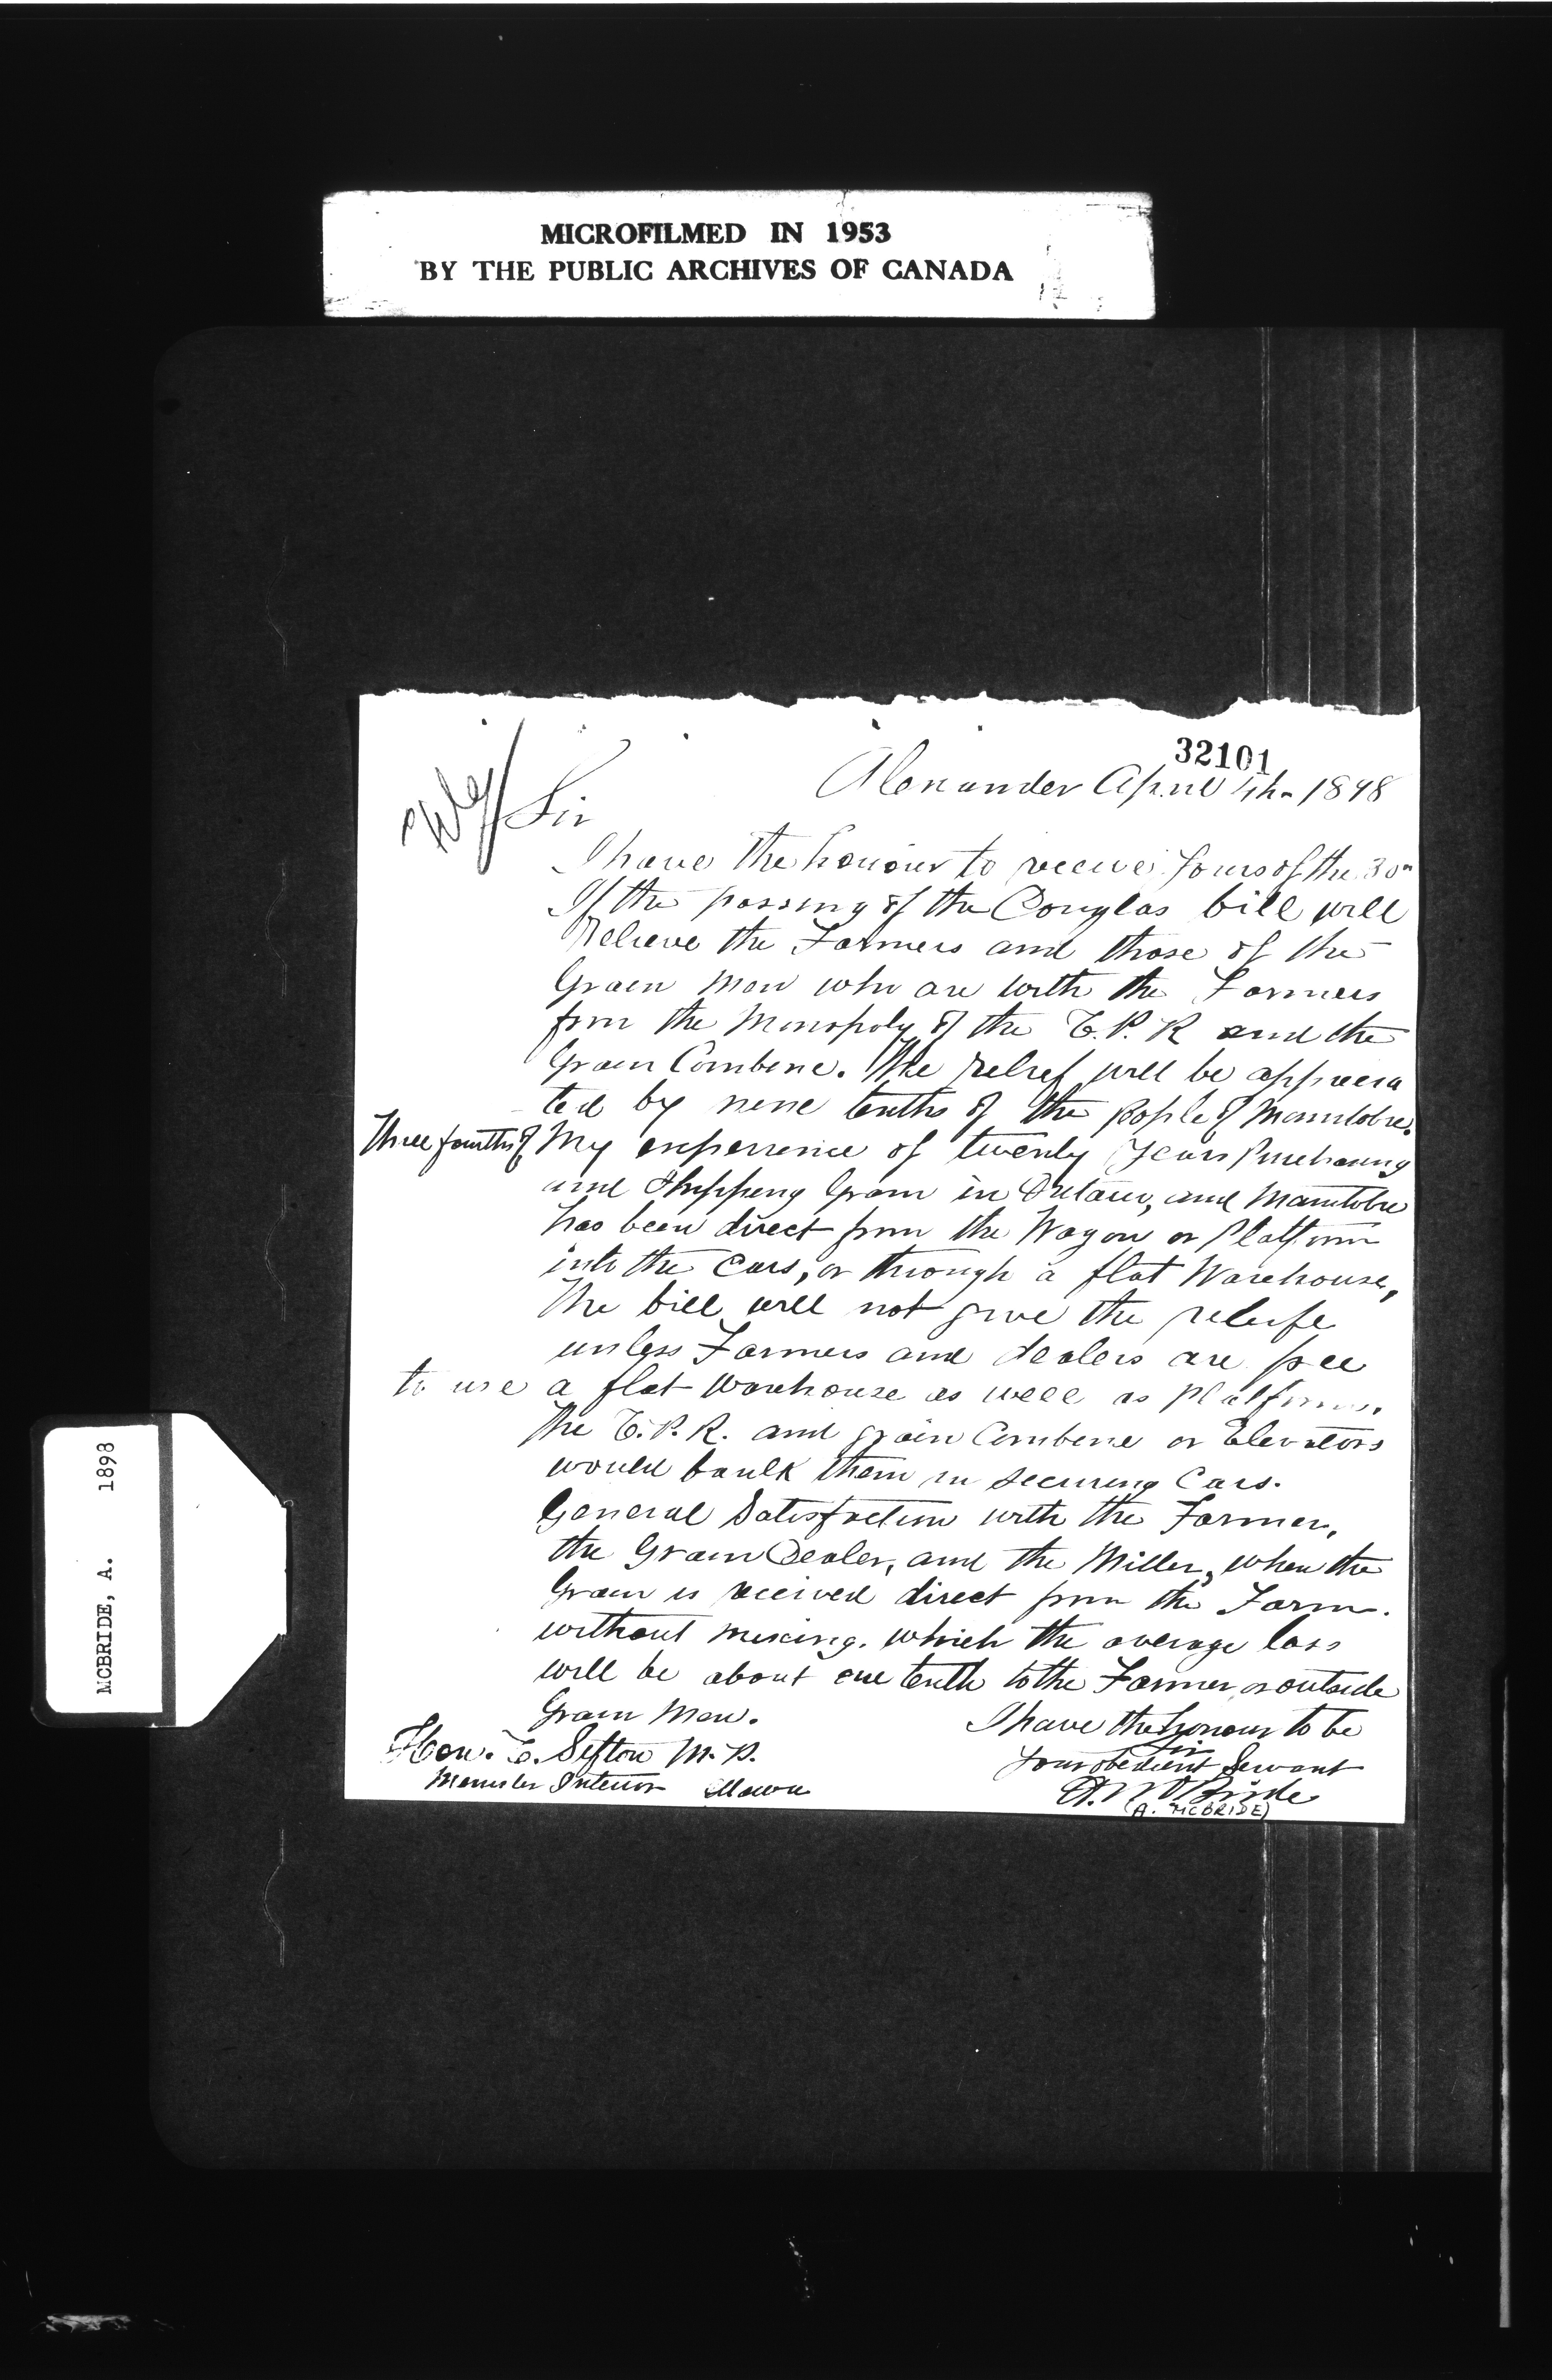 MICROFILMED IN 1953
BY THE PUBLIC ARCHIVES OF CANADA
32101
Alexander April 4th 1898
Sir
I have the honour to receive yours of the 30th
If the passing of the Douglas bill will
Relieve the Farmers and those of the
Grain men who are with the Farmers
from the Monopoly of the C.P.R and the
Grain Combine. The relief will be apprecia
ted by nine tenths of the people of Manitoba.
Three fourths of My experience of twenty years Purchasing
and Shipping Grain in Ontario, and Manitoba
has been direct from the Wagon or Platform
into the Cars, or through a flat Warehouse,
The bill will not give the reliefe
unless Farmers and dealers are free
to use a flat Warehouse as well as platforms.
The C.P.R. and grain Combine or Elevators
would baulk them in securing Cars.
General Satisfaction with the Farmer,
the Grain Dealer, and the Miller, when the
Grain is received direct from the Farm.
without mixing. which the average loss
will be about one tenth to the Farmer or outside
Grain Men.
I have the honour to be
Sir
Your obedient Servant
A. McBride
(A. MCBRIDE)
Hon. C. Sifton M.P.
Minister Interior Ottawa
MCBRIDE, A. 1898